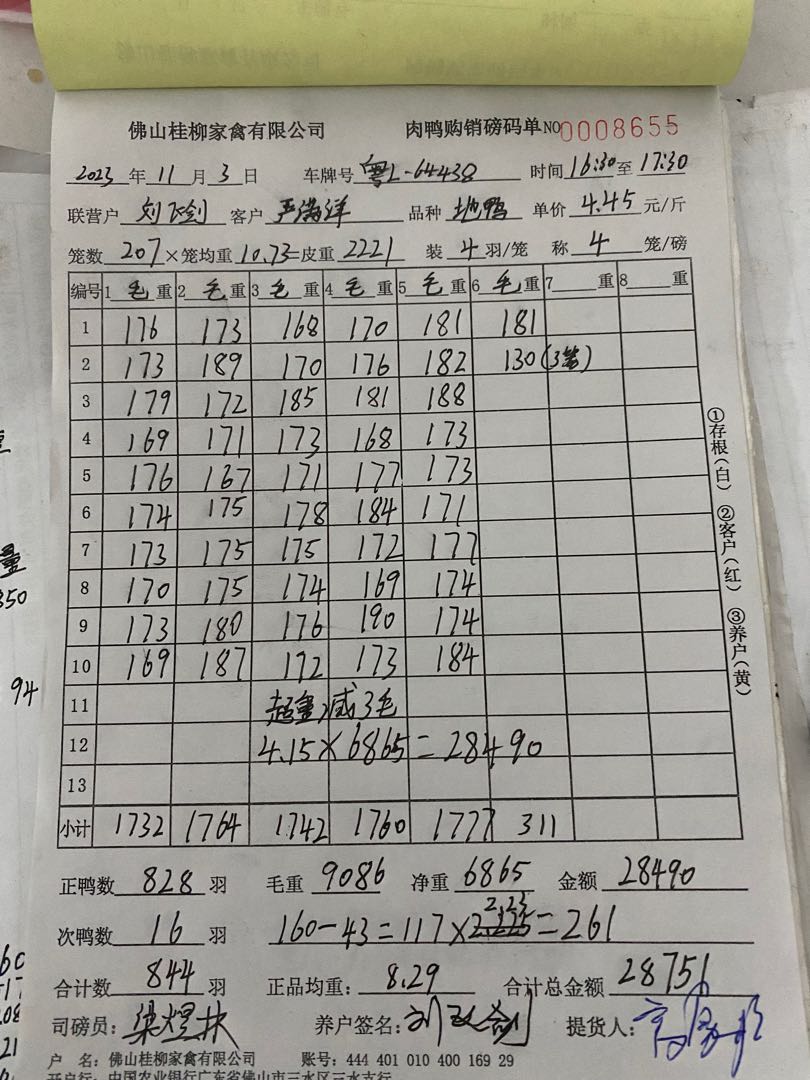 佛山桂柳家禽有限公司 肉鸭购销磅码单 NO 0008655
2023 年 11 月 3 日 车牌号 粤L-64438 时间 16:30 至 17:30
联营户 刘飞剑 客户 严满洋 品种 地鸭 单价 4.45 元/斤
笼数 207 ×笼均重 10.73 =皮重 2221 装 4 羽/笼 称 4 笼/磅
编号 1 毛 重 2 毛 重 3 毛 重 4 毛 重 5 毛 重 6 毛 重 7 重 8 重
1 176 173 168 170 181 181
2 173 189 170 176 182 130(3笼)
3 179 172 185 181 188
4 169 171 173 168 173
5 176 167 171 177 173
6 174 175 178 184 171
7 173 175 175 172 177
8 170 175 174 169 174
9 173 180 176 190 174
10 169 187 172 173 184
11 超重减3毛
12 4.15×6865=28490
13
小计 1732 1764 1742 1760 1777 311
正鸭数 828 羽 毛重 9086 净重 6865 金额 28490
次鸭数 16 羽 160-43=117× 2.23 =261
合计数 844 羽 正品均重: 8.29 合计总金额 28751
司磅员: 梁煜林 养户签名: 提货人:
户 名: 佛山桂柳家禽有限公司 账号: 444 401 010 400 169 29
开户行: 中国农业银行广东省佛山市三水区三水支行
①存根(白) ②客户(红) ③养户(黄)
量
350
94